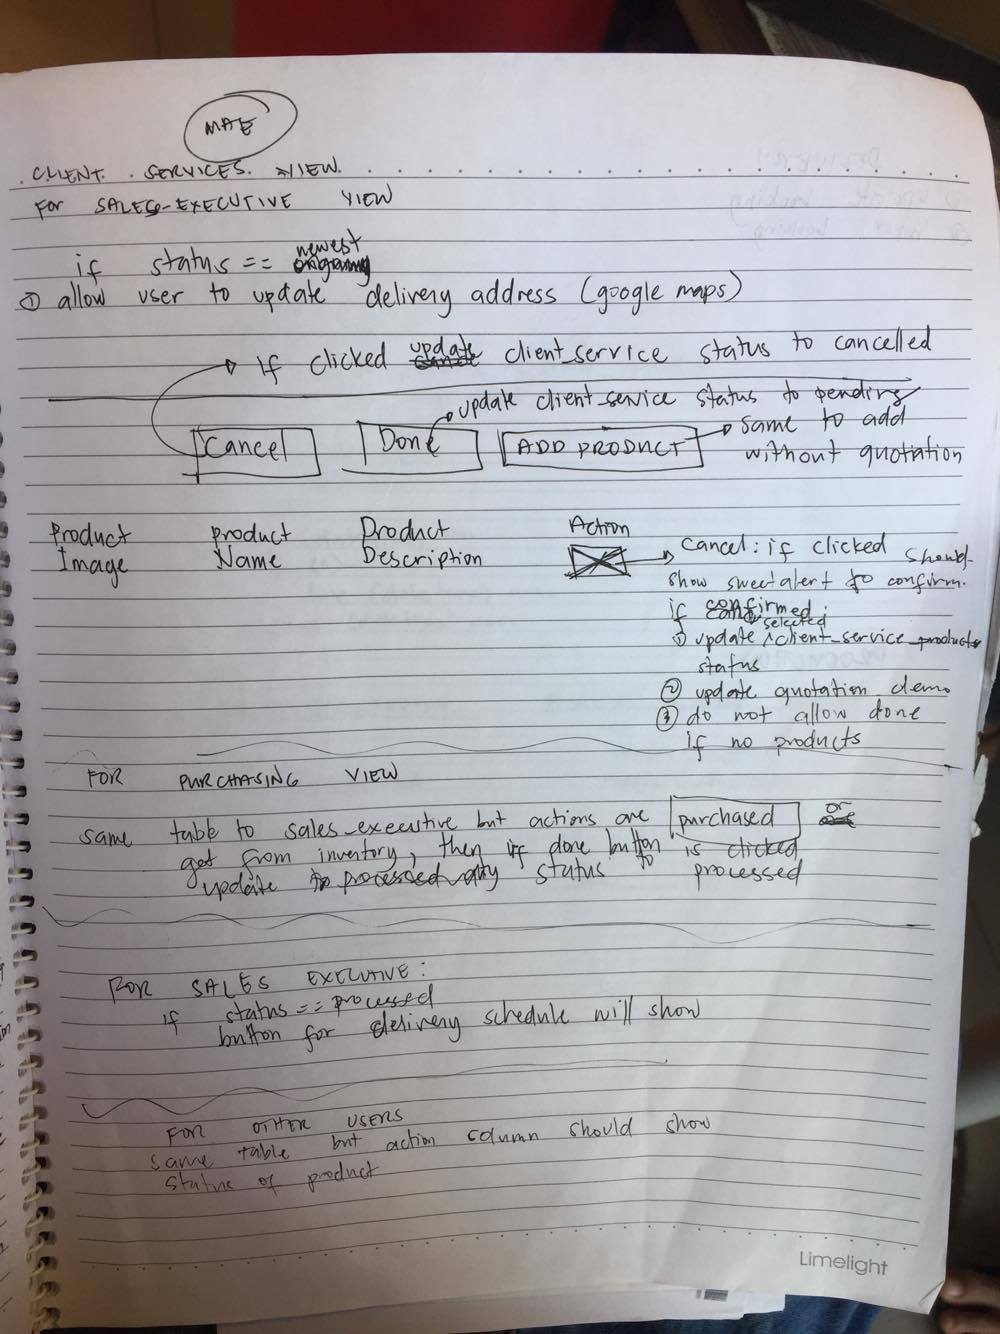 MAE
CLIENT SERVICES VIEW
FOR SALES-EXECUTIVE VIEW
if status == newest
① allow user to update delivery address (google maps)
If clicked update client_service status to cancelled
update client_service status to pending
Cancel Done ADD PRODUCT same to add
without quotation
Product product Product Action
Image Name Description
Cancel: if clicked should
show sweetalert to confirm.
if confirmed:
selected
① update client_service_products
status
② update quotation demo
③ do not allow done
if no products
FOR PURCHASING VIEW
same table to sales_executive but actions are purchased or
get from inventory, then if done button is clicked
update status to processed
FOR SALES EXECUTIVE:
if status == processed
button for delivery schedule will show
FOR OTHER USERS
same table but action column should show
status of product
Limelight